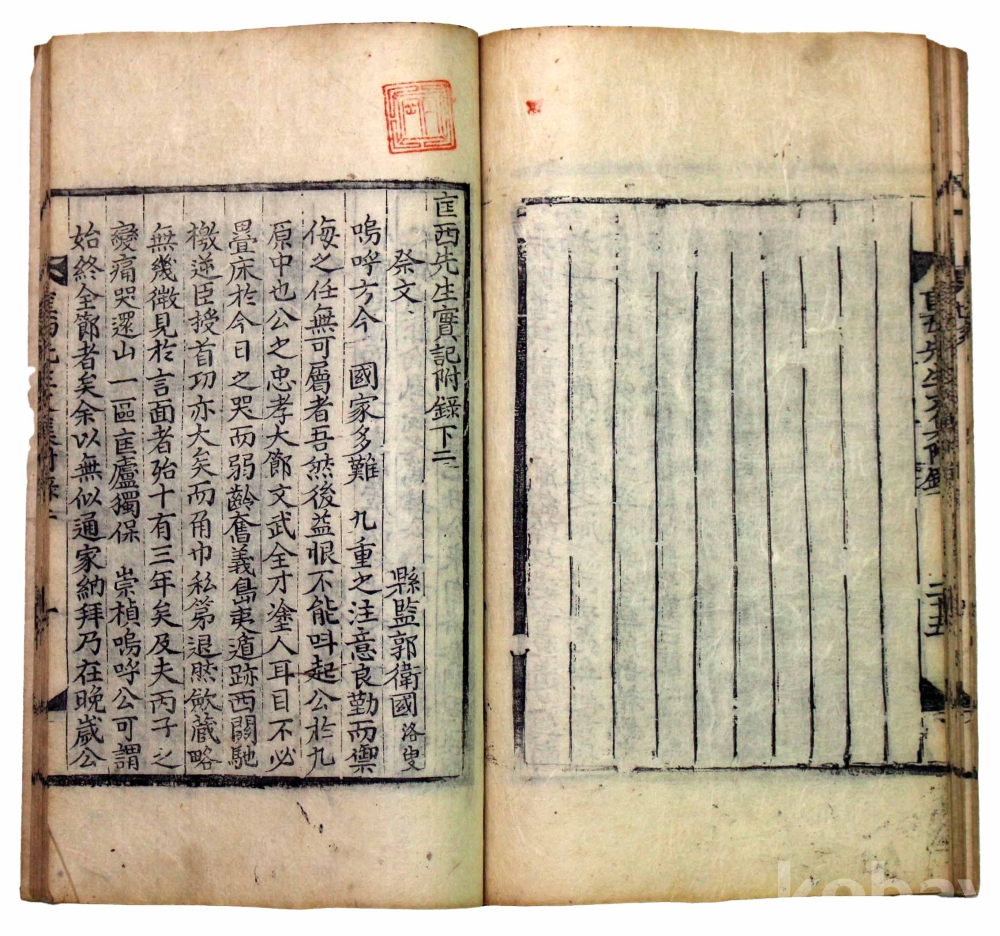 匡西先生實記附錄下二
祭文
縣監郭衛國 洛叟
嗚呼方今 國家多難 九重之注意良勤而禦
侮之任無可屬者吾然後益恨不能叫起公於九
原中也公之忠孝大節文武全才塗人耳目不必
疊床於今日之哭而弱齡奮義島夷遁跡西關馳
檄逆臣授首功亦大矣而角巾私第退然斂藏略
無幾微見於言面者殆十有三年矣及夫丙子之
變痛哭還山一區匡廬獨保 崇禎嗚呼公可謂
始終全節者矣余以無似通家納拜乃在晚歲公
二十五
kobay